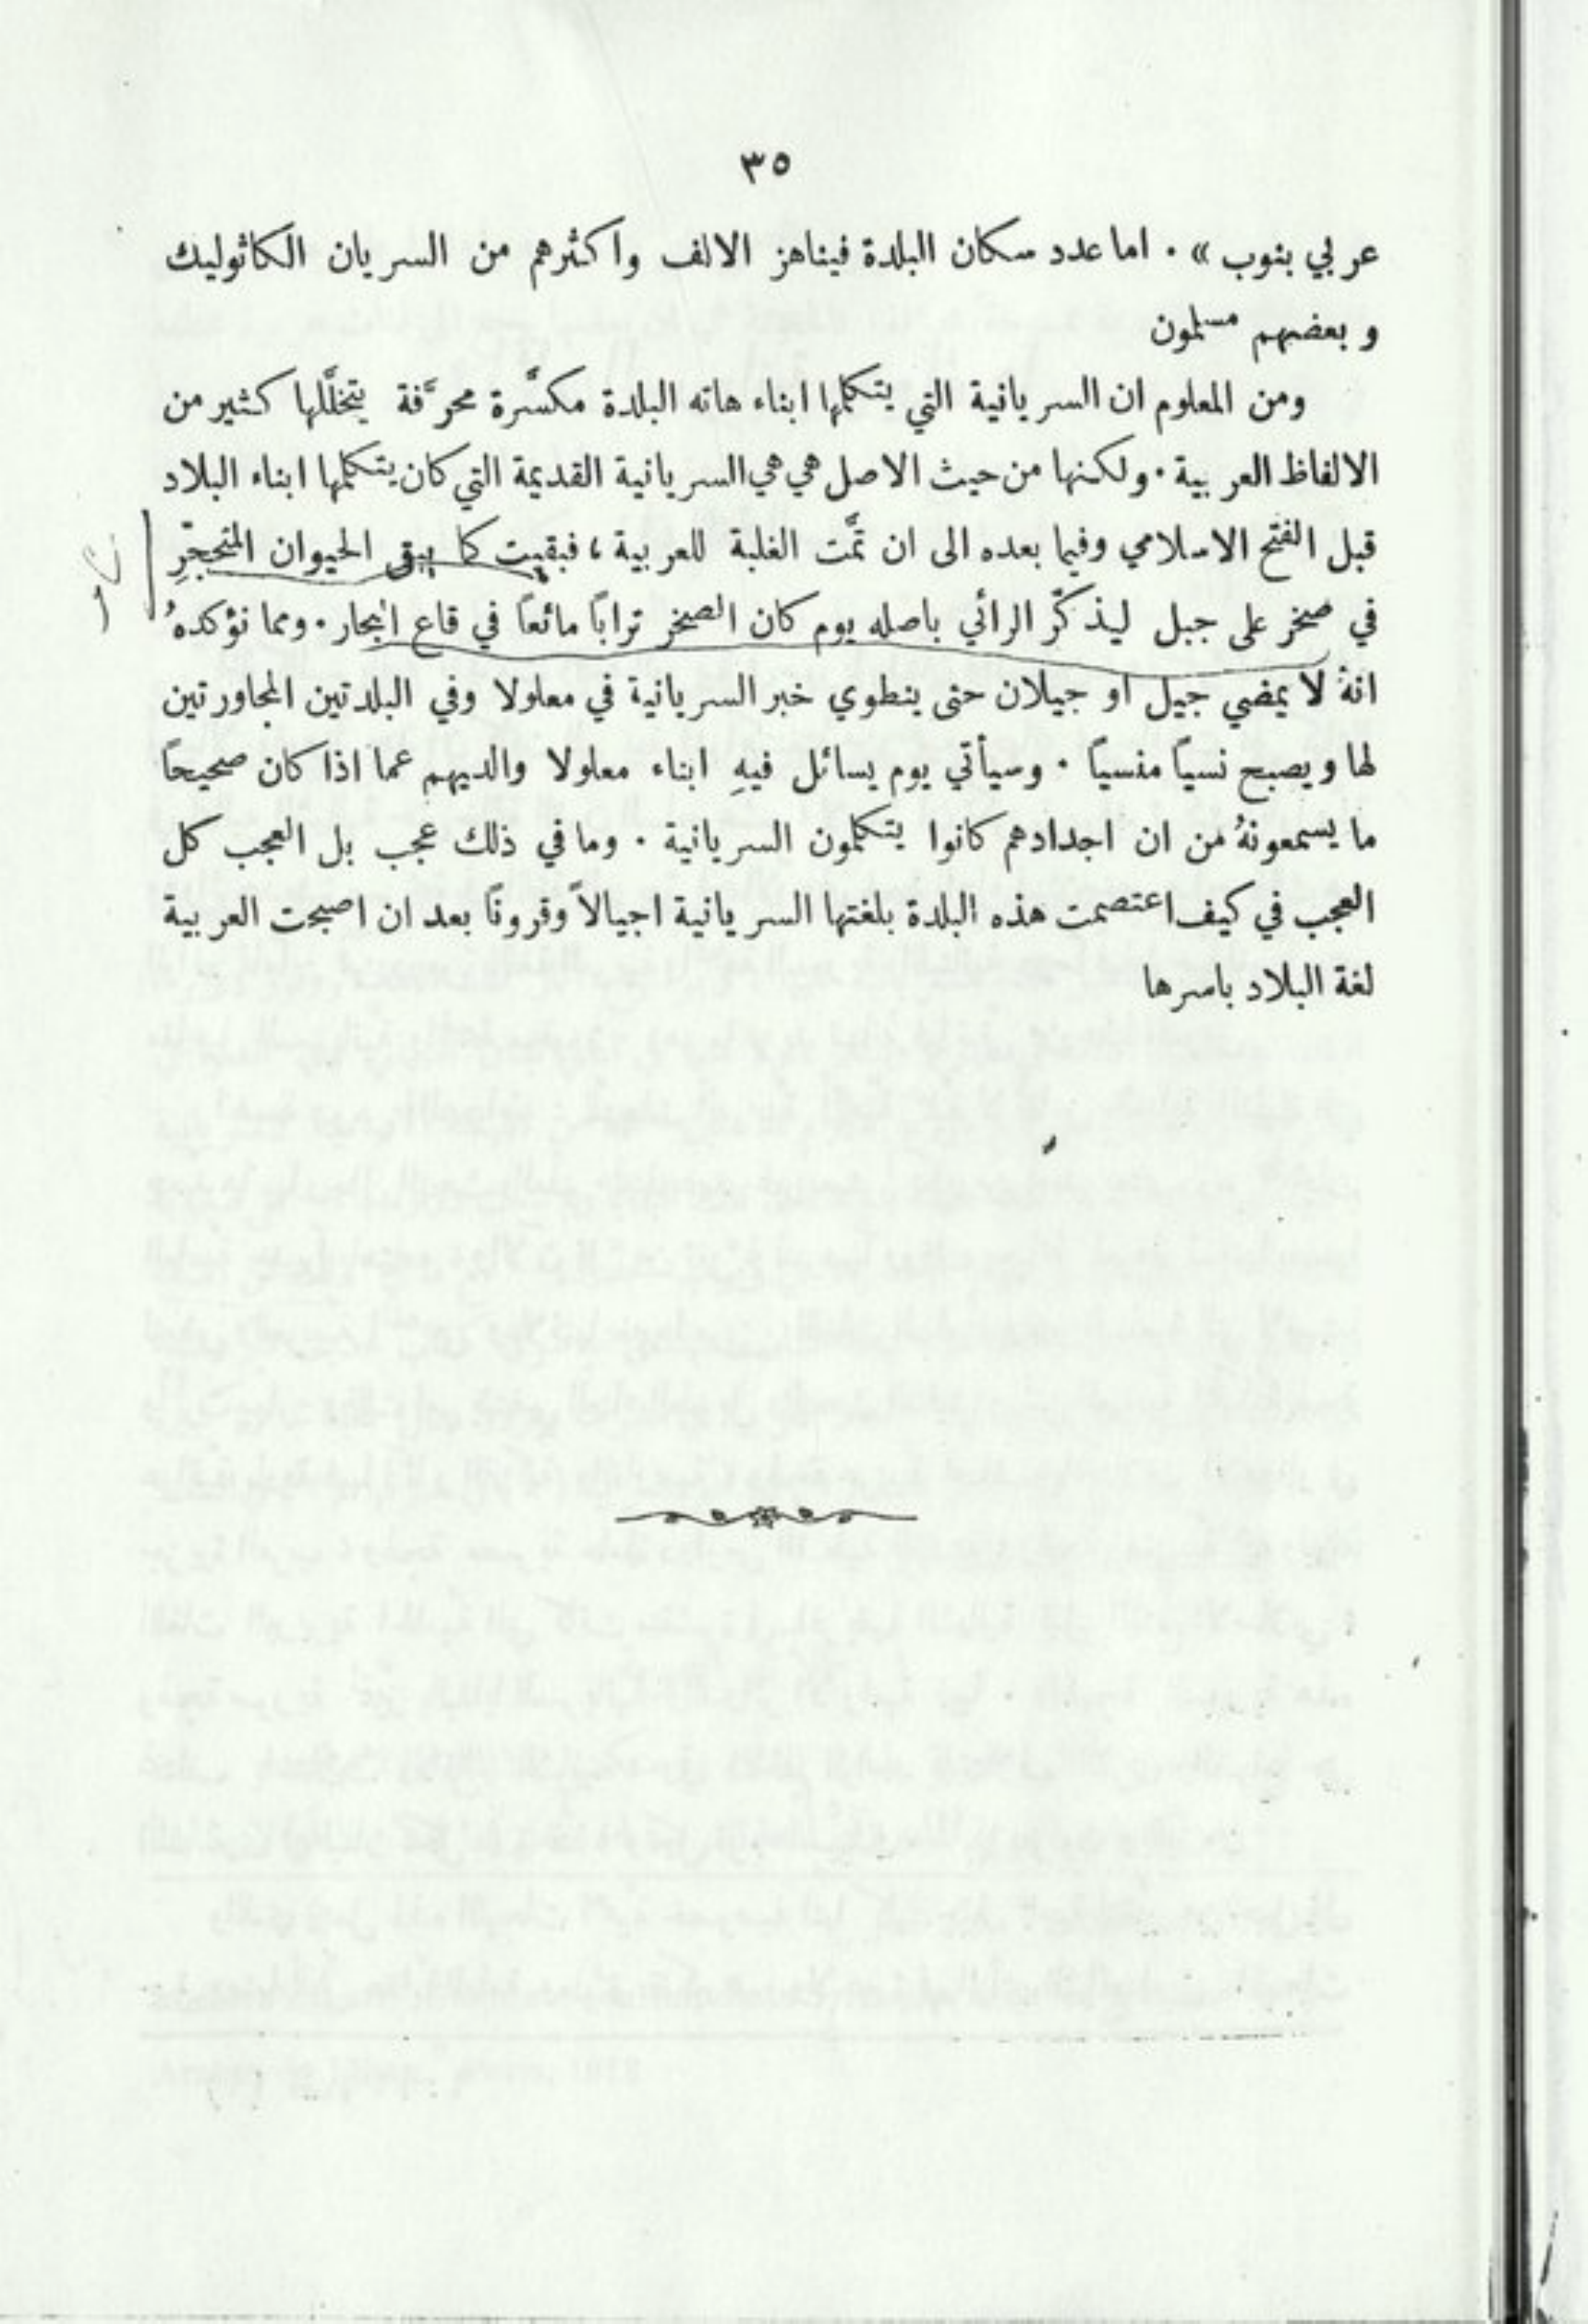 ٣٥
عربي بنوب» . اما عدد سكان البلدة فيناهز الالف واكثرهم من السريان الكاثوليك
وبعضهم مسلمون
ومن المعلوم ان السريانية التي يتكلمها ابناء هاته البلدة مكسَّرة محرَّفة يتخلَّلها كثير من
الالفاظ العربية . ولكنها من حيث الاصل هي هي السريانية القديمة التي كان يتكلمها ابناء البلاد
قبل الفتح الاسلامي وفيما بعده الى ان تمَّت الغلبة للعربية ، فبقيت كما يبقى الحيوان المتحجّرِ
في صخر على جبل ليذكّر الرائي باصله يوم كان الصخر تراباً مائعاً في قاع البحار . ومما نؤكدهُ
انهُ لا يمضي جيل او جيلان حتى ينطوي خبر السريانية في معلولا وفي البلدتين المجاورتين
لها ويصبح نسياً منسياً . وسيأتي يوم يسائل فيهِ ابناء معلولا والديهم عما اذا كان صحيحاً
ما يسمعونهُ من ان اجدادهم كانوا يتكلمون السريانية . وما في ذلك عجب بل العجب كل
العجب في كيف اعتصمت هذه البلدة بلغتها السريانية اجيالاً وقروناً بعد ان اصبحت العربية
لغة البلاد باسرها